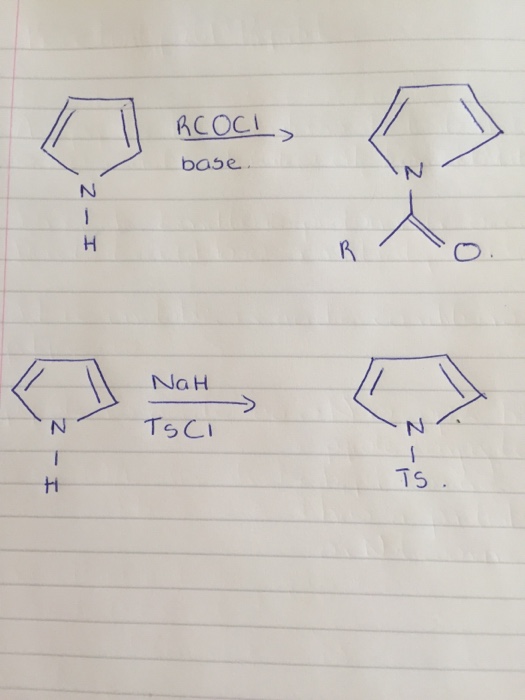 RCOCl
base.
N
N
H
R
O.
NaH
TsCl
N
N
H
TS.